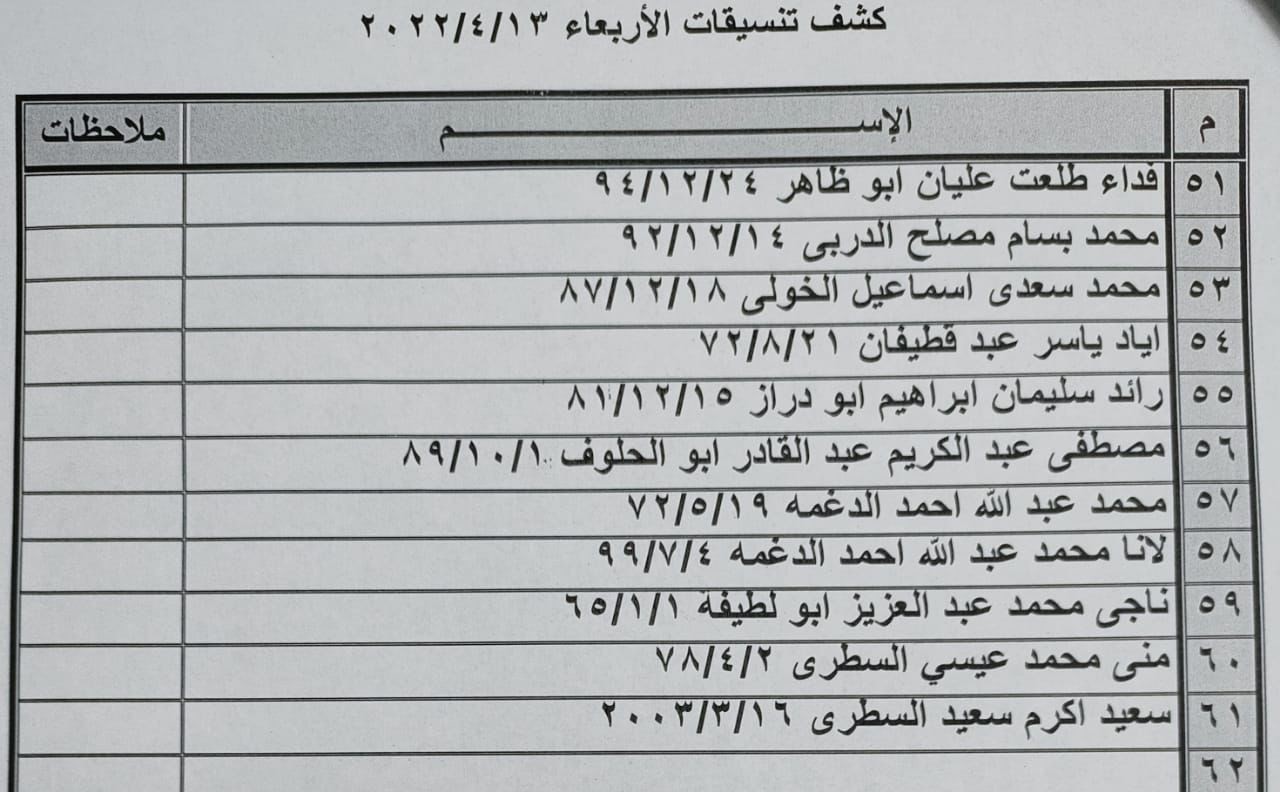 كشف تنسيقات الأربعاء ٢٠٢٢/٤/١٣
م الإســــــــم ملاحظات
٥١ فداء طلعت عليان ابو ظاهر ٩٤/١٢/٢٤
٥٢ محمد بسام مصلح الدربى ٩٢/١٢/١٤
٥٣ محمد سعدى اسماعيل الخولى ٨٧/١٢/١٨
٥٤ اياد ياسر عبد قطيفان ٧٢/٨/٢١
٥٥ رائد سليمان ابراهيم ابو دراز ٨١/١٢/١٥
٥٦ مصطفى عبد الكريم عبد القادر ابو الحلوف ٨٩/١٠/١
٥٧ محمد عبد الله احمد الدغمه ٧٢/٥/١٩
٥٨ لانا محمد عبد الله احمد الدغمه ٩٩/٧/٤
٥٩ ناجى محمد عبد العزيز ابو لطيفة ٦٥/١/١
٦٠ منى محمد عيسي السطرى ٧٨/٤/٢
٦١ سعيد اكرم سعيد السطرى ٢٠٠٣/٣/١٦
٦٢